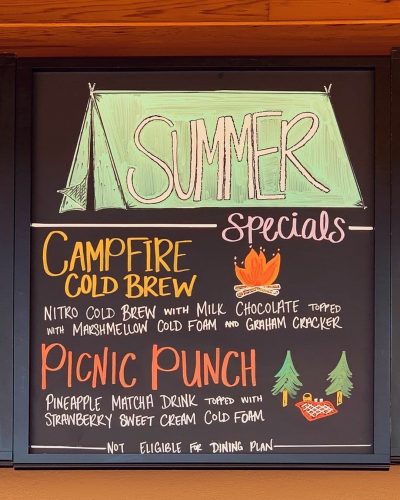 SUMMER
Specials
CAMPFIRE
COLD BREW
NITRO COLD BREW WITH MILK CHOCOLATE TOPPED
WITH MARSHMELLOW COLD FOAM AND GRAHAM CRACKER
PICNIC PUNCH
PINEAPPLE MATCHA DRINK TOPPED WITH
STRAWBERRY SWEET CREAM COLD FOAM
NOT ELIGIBLE FOR DINING PLAN